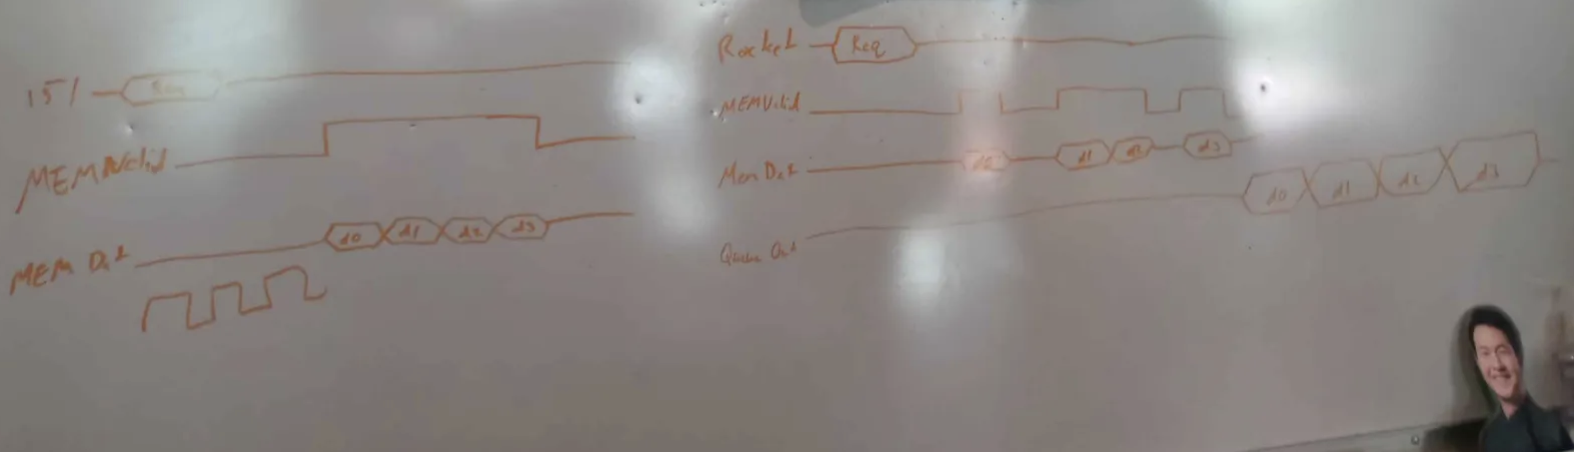 151
Req
MEM Valid
MEM Dat
d0 d1 d2 d3
Rocket Req
MEMValid
Mem Dat d0 d1 d2 d3
Queue Out d0 d1 d2 d3